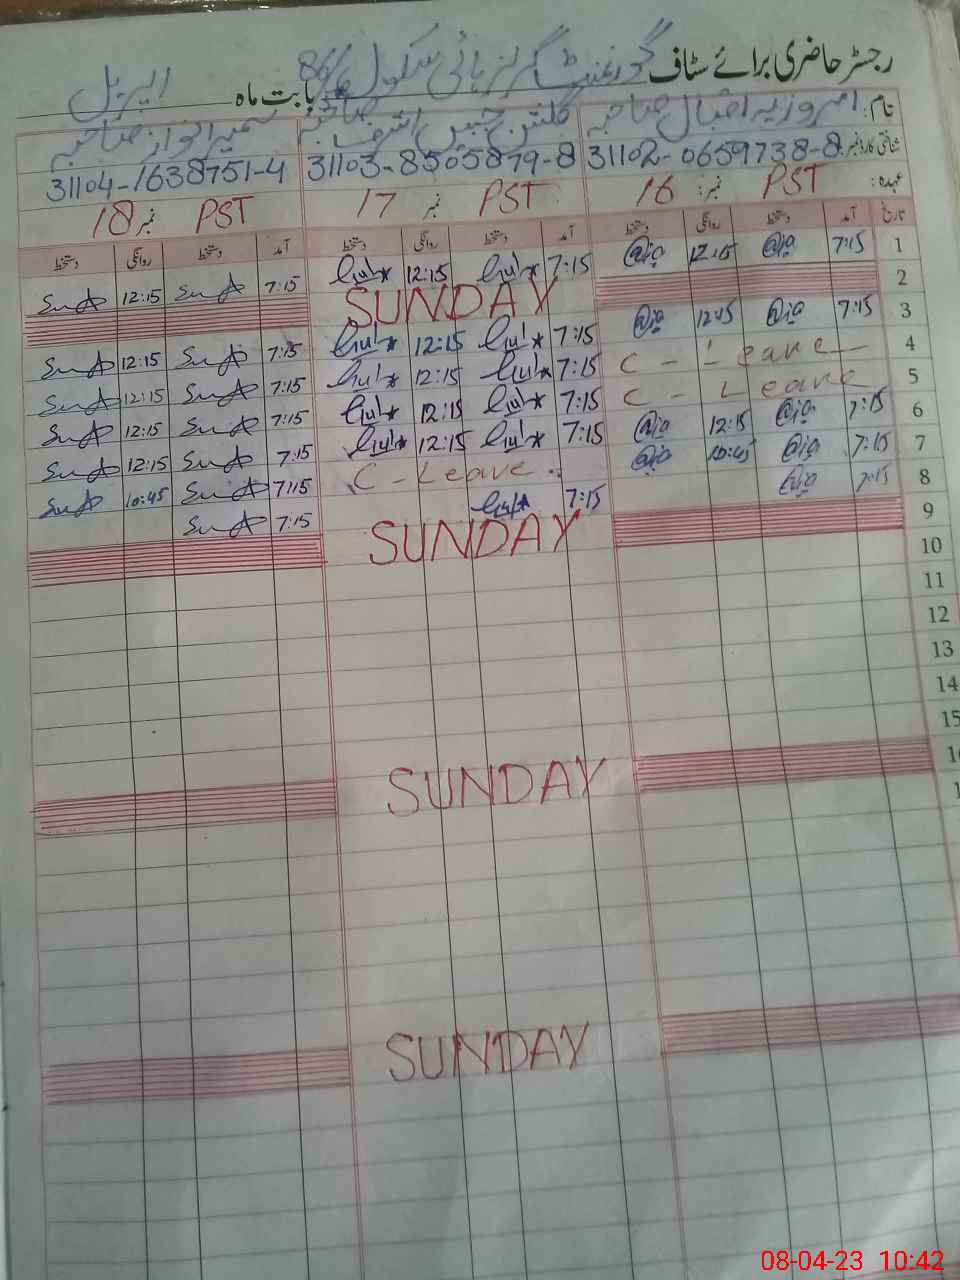 رجسٹر حاضری برائے سٹاف گورنمنٹ گرلز ہائی سکول 86/ بابت ماہ اپریل
نام: امروزیہ اقبال صاحبہ گلشن جبیں اشرف صاحبہ سمیرا انواز صاحبہ
شناختی کارڈ نمبر: 31102-0659738-8 31103-8505879-8 31104-1638751-4
عہدہ: PST نمبر 16 PST نمبر 17 PST نمبر 18
تاریخ آمد دستخط روانگی دستخط آمد دستخط روانگی دستخط آمد دستخط روانگی دستخط
1 7:15 12:15 7:15 12:15 7:15 12:15
2 SUNDAY
3 7:15 12:15 7:15 12:15 7:15 12:15
4 C - Leave 7:15 12:15 7:15 12:15
5 C - Leave 7:15 12:15 7:15 12:15
6 7:15 12:15 7:15 12:15 7:15 12:15
7 7:15 10:45 C - Leave 7:15 10:45
8 7:15 7:15 7:15
9 SUNDAY
10
11
12
13
14
15
SUNDAY
SUNDAY
08-04-23 10:42